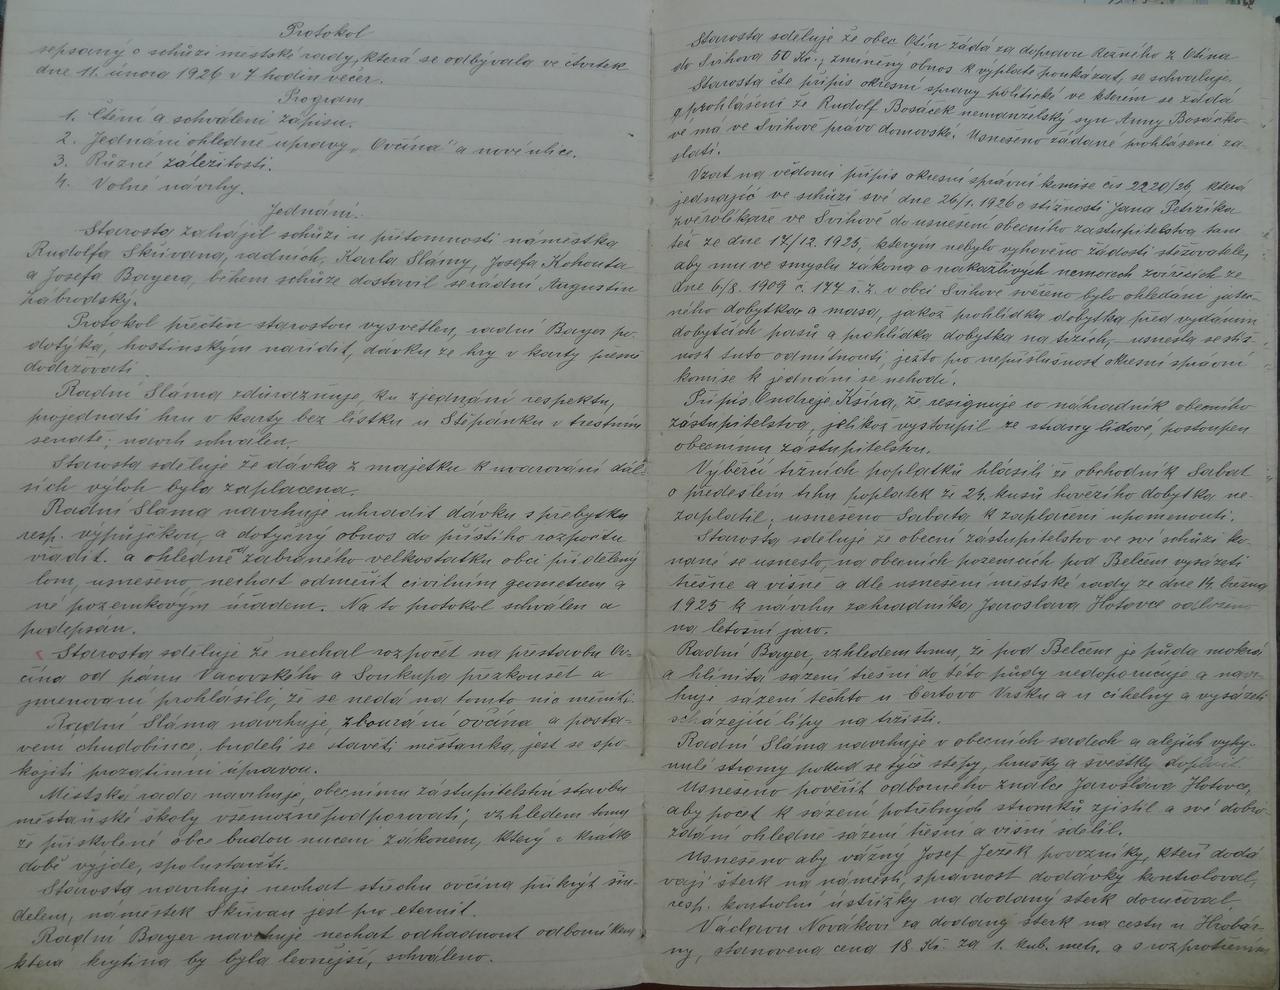 Protokol
sepsaný o schůzi městské rady, která se odbývala ve čtvrtek
dne 11. února 1926 v 7 hodin večer.
Program
1. Čtení a schválení zápisu.
2. Jednání ohledně úpravy „Ovčína" a nové ulice.
3. Různé záležitosti.
4. Volné návrhy.
Jednání.
Starosta zahájil schůzi u přítomnosti náměstka
Rudolfa Skřivana, radních, Karla Slámy, Josefa Kohouta
a Josefa Bayera, během schůze dostavil se radní Augustin
Nábrodský.
Protokol přečten starostou vysvětlen, radní Bayer po-
dotýká, hostinským naříditi, dávku ze hry v karty přesně
dodržovati.
Radní Sláma zdůrazňuje, ku zjednání respektu,
projednati hru v karty bez lístku u Štěpánku v trestním
senátě; navrh schválen.
Starosta sděluje že dávka z majetku k uvarování dal-
ších výloh byla zaplacena.
Radní Sláma navrhuje uhradit dávku s přebytku
resp. výpůjčkou, a dotyčný obnos do příštího rozpočtu
vřadit. a ohledně ze zabraného velkostatku obci přidělený
lom, usneseno, nechat odměřit civilním geometrem a
ne pozemkovým úřadem. Na to protokol schválen a
podepsán.
Starosta sděluje že nechal rozpočet na přestavbu Ov-
čína od pánů Vacovského a Soukupa přezkoušet a
jmenovaní prohlásili, že se nedá na tomto nic měniti.
Radní Sláma navrhuje, zbourání ovčína a posta-
vení chudobince; budeli se stavěti měšťanka, jest se spo-
kojiti prozatimní úpravou.
Městská rada navrhuje, obecnímu zastupitelstvu stavbu
měšťanské školy všemožně podporovati, vzhledem tomu
že přiškolené obce budou nuceni zákonem, který v krátké
době vyjde, spolustavěti.
Starosta navrhuje nechat střechu ovčína přikrýt šin-
delem, náměstek Skřivan jest pro eternit.
Radní Bayer navrhuje nechat odhadnout odborníkem
která krytina by byla levnější, schváleno.
Starosta sděluje že obec Otín žádá za dopravu Režného z Otína
do Švihova 50 Kč., zmíněný obnos k výplatě poukázat, se schvaluje.
Starosta čte přípis okresní správy politické ve kterém se žádá
o prohlášení že Rudolf Bosáček nemanželský syn Anny Bosáčko-
vé má ve Švihově právo domovské. Usneseno žádané prohlášení za-
slati.
Vzat na vědomí přípis okresní správní komise čís 2220/26, která
jednajíc ve schůzi své dne 26/1. 1926 o stížnosti Jana Petržíka
zvěrolékaře ve Švihově do usnesení obecního zastupitelstva tam
též ze dne 17/12. 1925, kterým nebylo vyhověno žádosti stěžovatele,
aby mu ve smyslu zákona o nakažlivých nemocech zvířecích ze
dne 6/8. 1909 č. 177 ř. z. v obci Švihově svěřeno bylo ohledání jateč-
ného dobytka a masa, jakož prohlídka dobytka před vydáním
dobytčích pasů a prohlídka dobytka na trzích, usnesla se stíž-
nost tuto odmítnouti, ježto pro nepříslušnost okresní správní
komise k jednání se nehodí.
Přípis Ondřeje Ksíra, že resignuje co náhradník obecního
zástupitelstva, jelikož vystoupil ze strany lidové, postoupen
obecnímu zástupitelstvu.
Výběrčí tržních poplatků hlásili že obchodník Sabat
o předešlém trhu poplatek ze 24. kusů hovězího dobytka ne-
zaplatil; usneseno Sabata k zaplacení upomenouti.
Starosta sděluje že obecní zastupitelstvo ve své schůzi ko-
nané se usneslo, na obecních pozemcích pod Belčem vysázeti
třešně a višně a dle usnesení městské rady ze dne 14. března
1925 k návrhu zahradníka Jaroslava Hotovce odloženo
na letošní jaro.
Radní Bayer, vzhledem tomu, že pod Belčem je půda mokrá
a hlinitá sázení třešní do této půdy nedoporučuje a navr-
huje sázení těchto u Čertovo Vršku a u cihelny a vysázeti
scházející lípy na tržišti.
Radní Sláma navrhuje v obecních sadech a alejích vyhy-
nulé stromy pokud se týče štěpy, hrušky a švestky doplnit.
Usneseno pověřit odborného znalce Jaroslava Hotovce,
aby počet k sázení potřebných stromků zjistil a své dobro-
zdání ohledně sázení třešní a višní sdělil.
Usneseno aby vážný Josef Ježek povozníky, kteří dodá-
vají štěrk na náměstí, správnost dodávky kontroloval,
resp. kontrolní ústřižky na dodaný štěrk doručoval.
Václavu Novákovi za dodaný štěrk na cestu u Hrobár-
ny, stanovena cena 18 Kč. za 1. kub. metr. a s rozprostřením